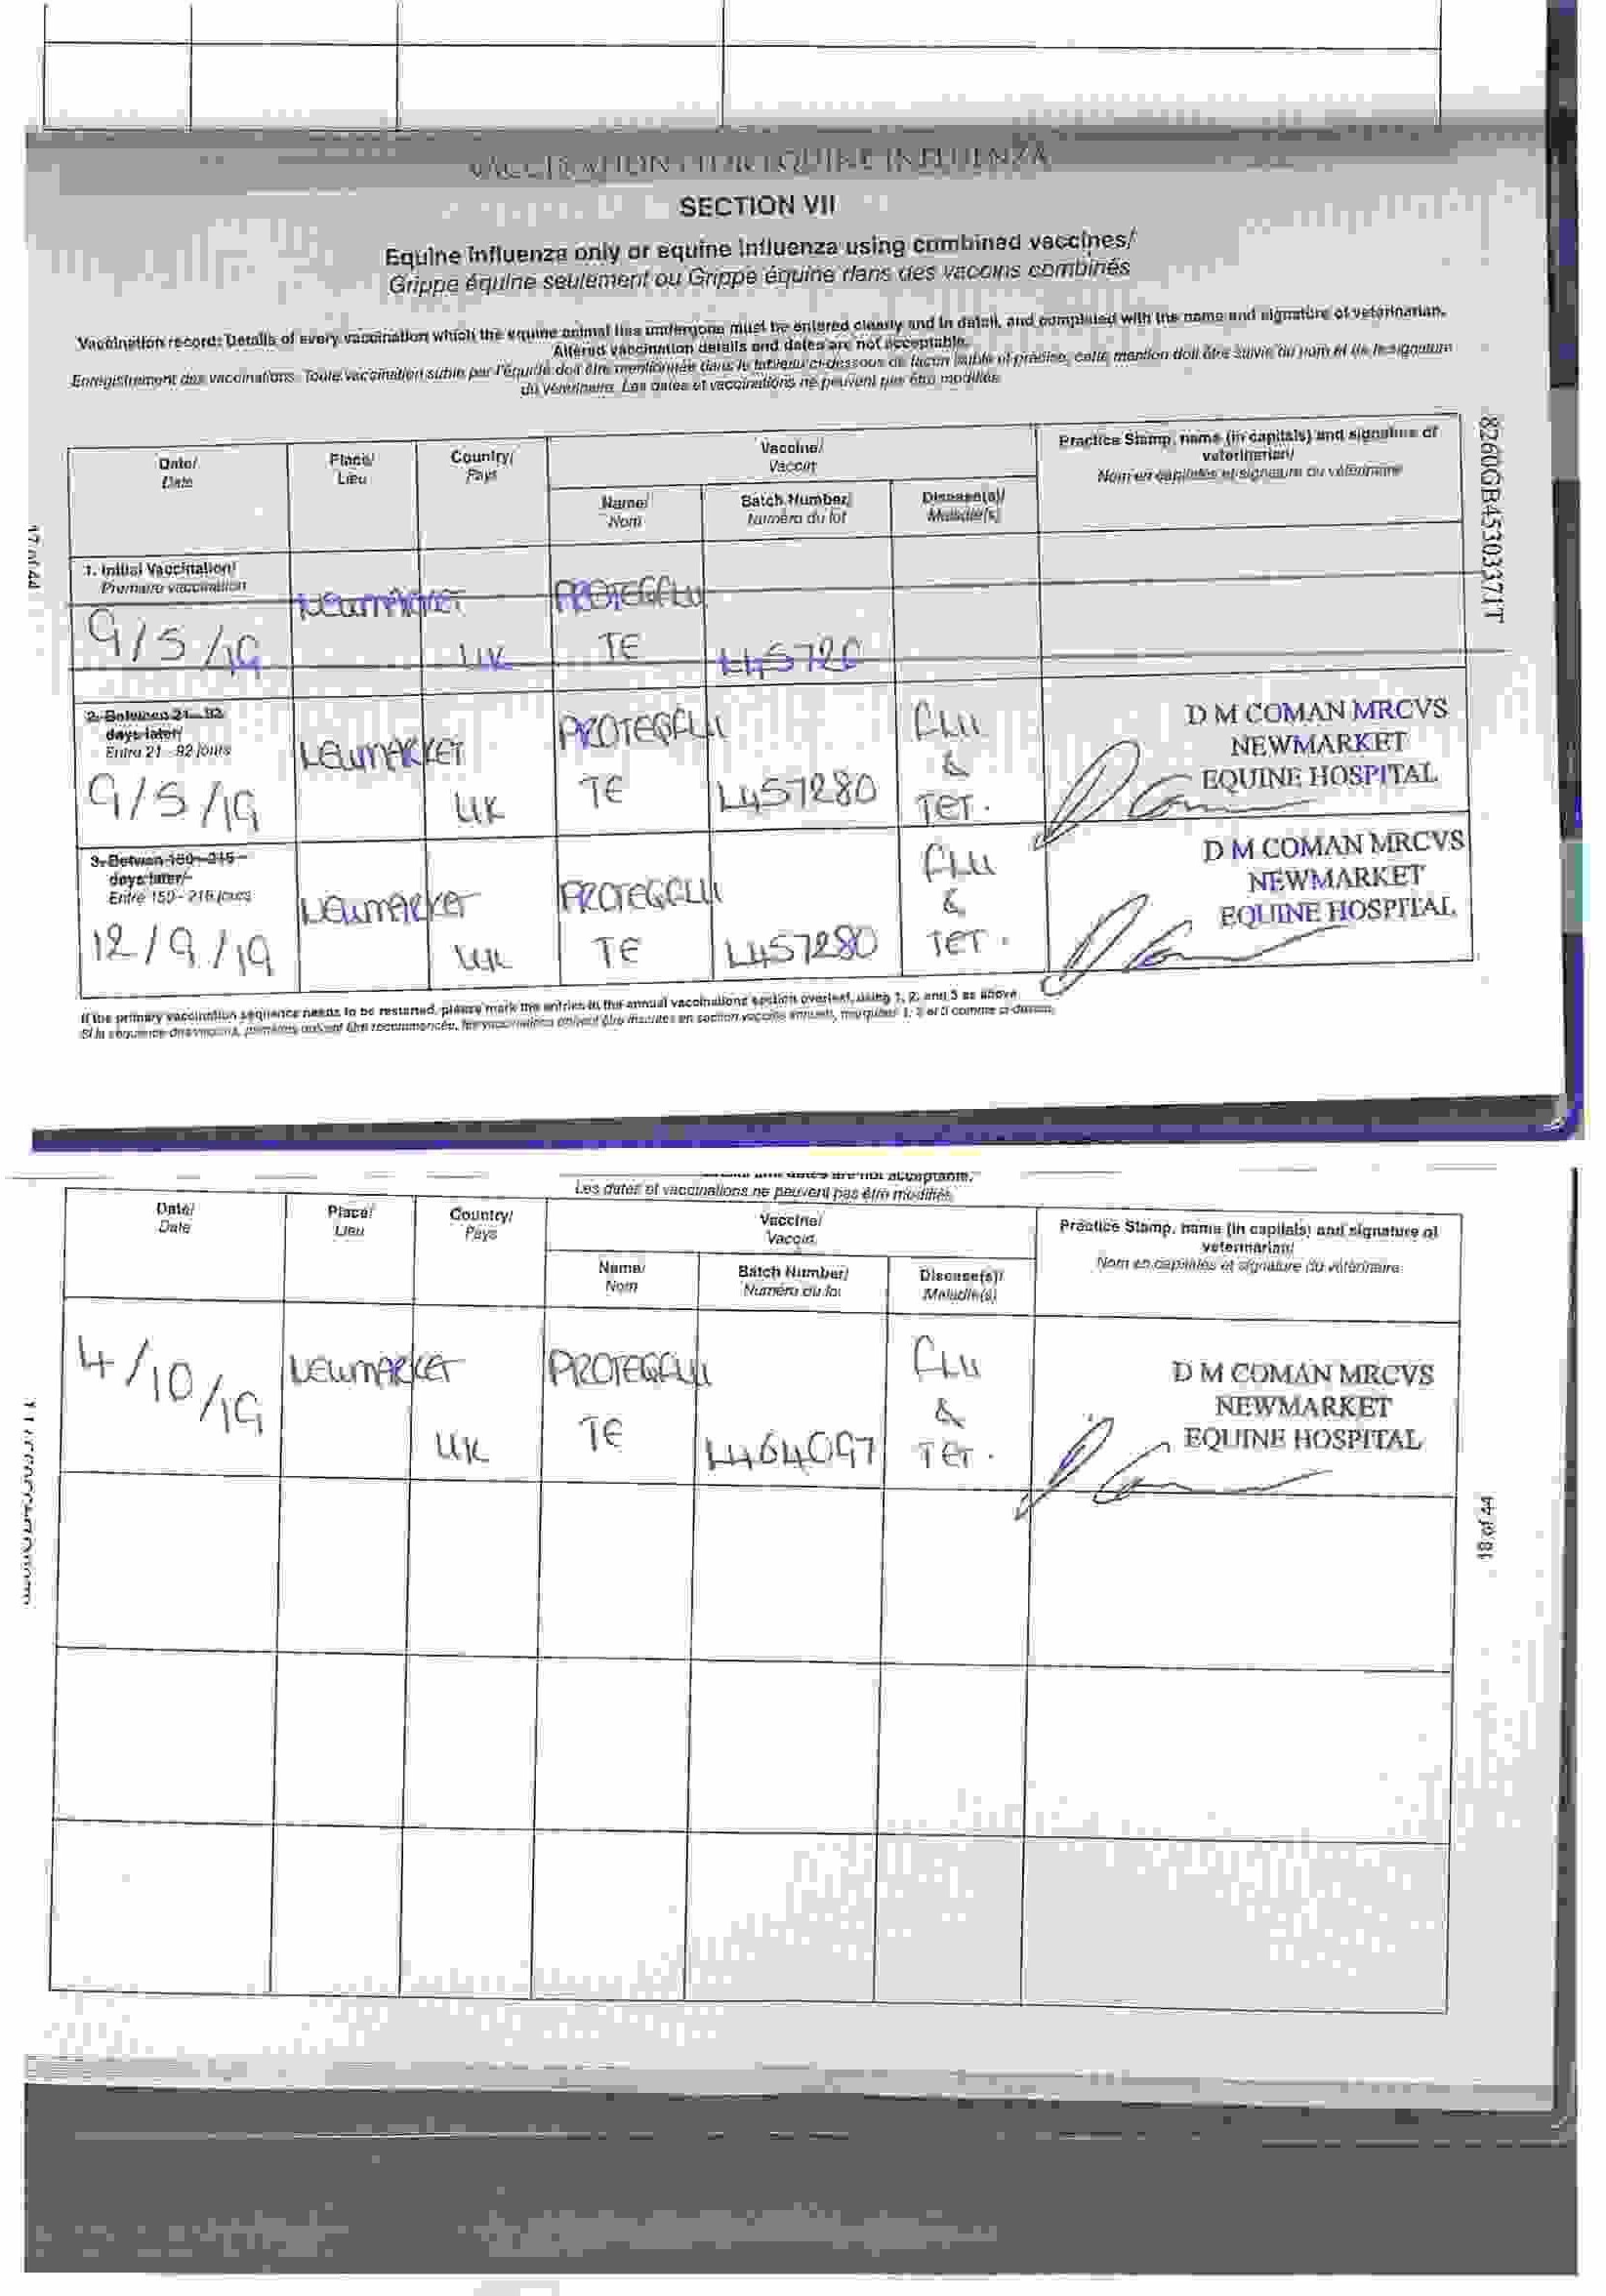 VACCINATION FOR EQUINE INFLUENZA
SECTION VII
Equine influenza only or equine influenza using combined vaccines/
Grippe équine seulement ou Grippe équine dans des vaccins combinés
Vaccination record: Details of every vaccination which the equine animal has undergone must be entered clearly and in detail, and completed with the name and signature of veterinarian.
Altered vaccination details and dates are not acceptable.
Enregistrement des vaccinations. Toute vaccination subie par l'équidé doit être mentionnée dans le tableau ci-dessous de façon lisible et précise, cette mention doit être suivie du nom et de la signature
du vétérinaire. Les dates et vaccinations ne peuvent pas être modifiés
Date/ Place/ Country/ Vaccine/ Practice Stamp, name (in capitals) and signature of
Date Lieu Pays Vaccin veterinarian/
Nom en capitales et signature du vétérinaire
Name/ Batch Number/ Disease(s)/
Nom Numéro du lot Maladie(s)
17 of 44
1. Initial Vaccination/
Première vaccination
NEWMARKET PROTEQFLU
9/5/19 UK TE
2. Between 21-92
days later/
Entre 21-92 jours
NEWMARKET PROTEQFLU FLU
9/5/19 UK TE L457280 & TET.
D M COMAN MRCVS
NEWMARKET
EQUINE HOSPITAL
3. Betwen 150-215
days later/
Entre 150-215 jours
NEWMARKET PROTEQFLU FLU
12/9/19 UK TE L457280 & TET.
D M COMAN MRCVS
NEWMARKET
EQUINE HOSPITAL
If the primary vaccination sequence needs to be restarted, please mark the entries in the annual vaccinations section overleaf, using 1, 2, and 3 as above
dates are not acceptable.
Les dates et vaccinations ne peuvent pas être modifiés
Date/ Place/ Country/ Vaccine/ Practice Stamp, name (in capitals) and signature of
Date Lieu Pays Vaccin veterinarian/
Nom en capitales et signature du vétérinaire
Name/ Batch Number/ Disease(s)/
Nom Numéro du lot Maladie(s)
4/10/19 NEWMARKET PROTEQFLU FLU
UK TE L464097 & TET.
D M COMAN MRCVS
NEWMARKET
EQUINE HOSPITAL
18 of 44